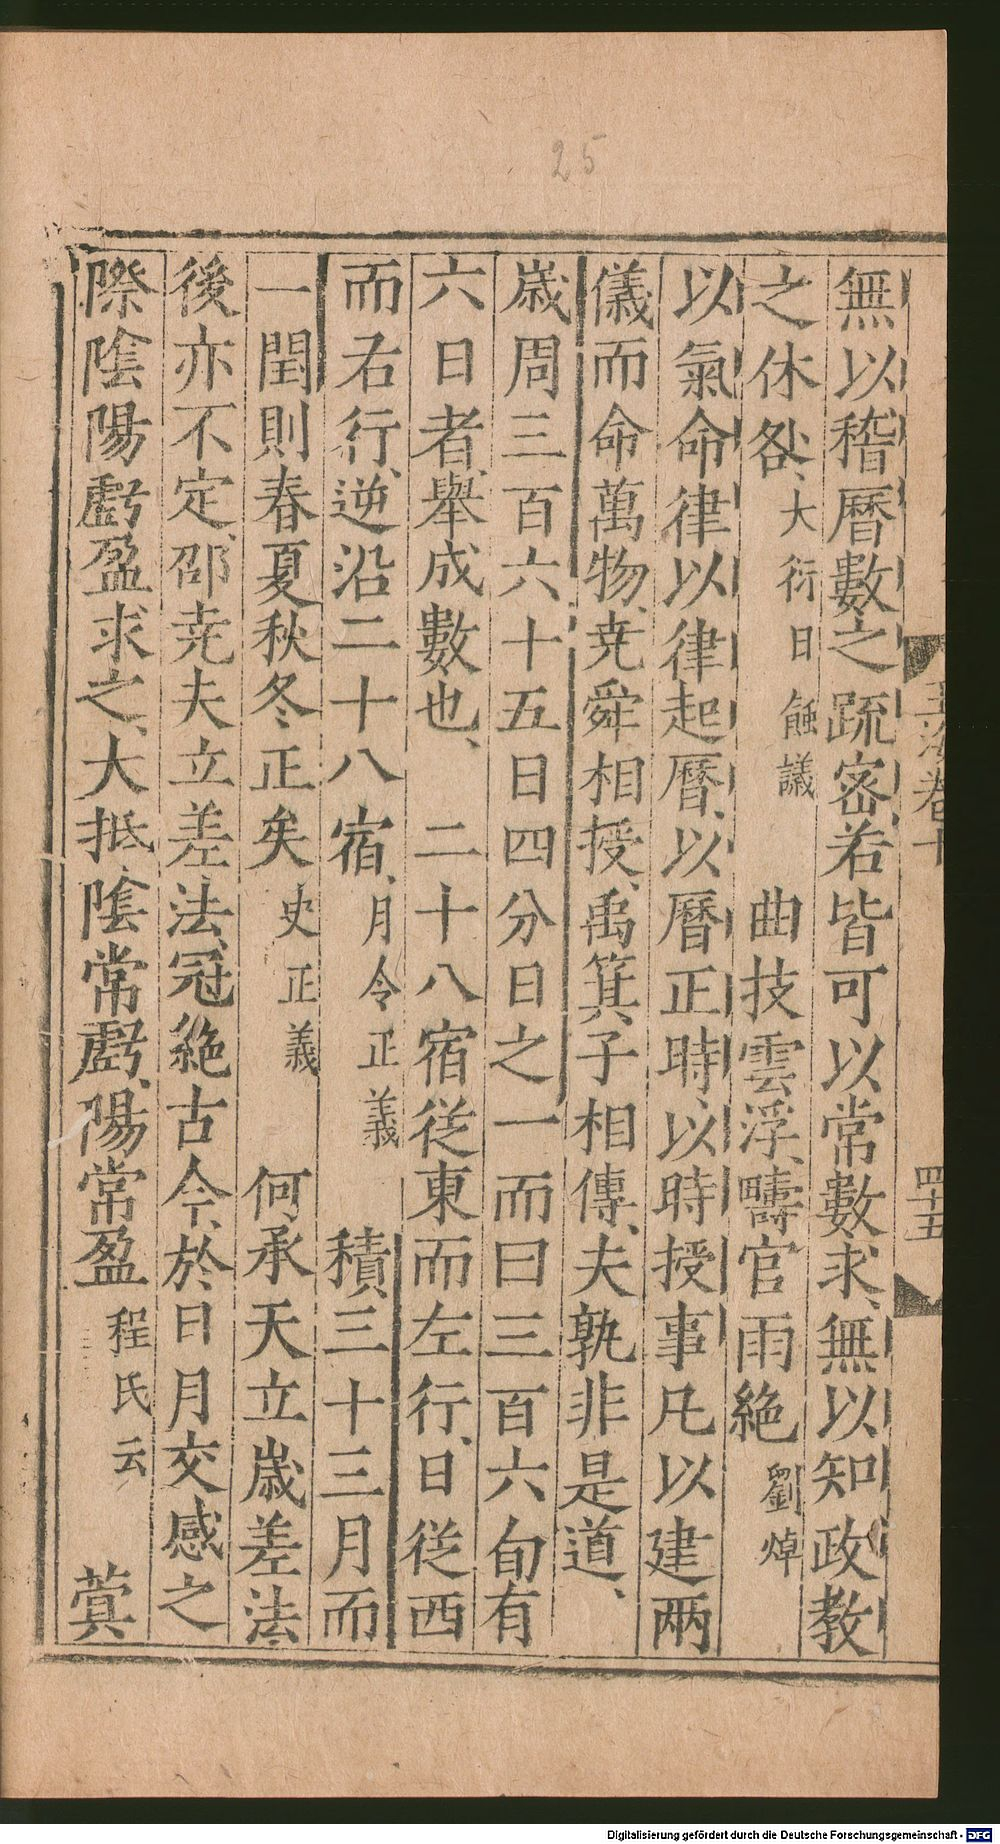 25
無以稽曆數之疏密若皆可以常數求無以知政教
之休咎大衍日蝕議　曲技雲浮疇官雨絶劉焯
以氣命律以律起曆以曆正時以時授事凡以建兩
儀而命萬物尭舜相授禹箕子相傳夫孰非是道
嵗周三百六十五日四分日之一而曰三百六旬有
六日者舉成數也　二十八宿從東而左行日從西
而右行逆沿二十八宿月令正義　積三十三月而
一閏則春夏秋冬正矣史正義　何承天立嵗差法
後亦不定邵尭夫立差法冠絶古今於日月交感之
際陰陽虧盈求之大抵陰常虧陽常盈程氏云　蓂
玉海卷十
四十五
Digitalisierung gefördert durch die Deutsche Forschungsgemeinschaft - DFG